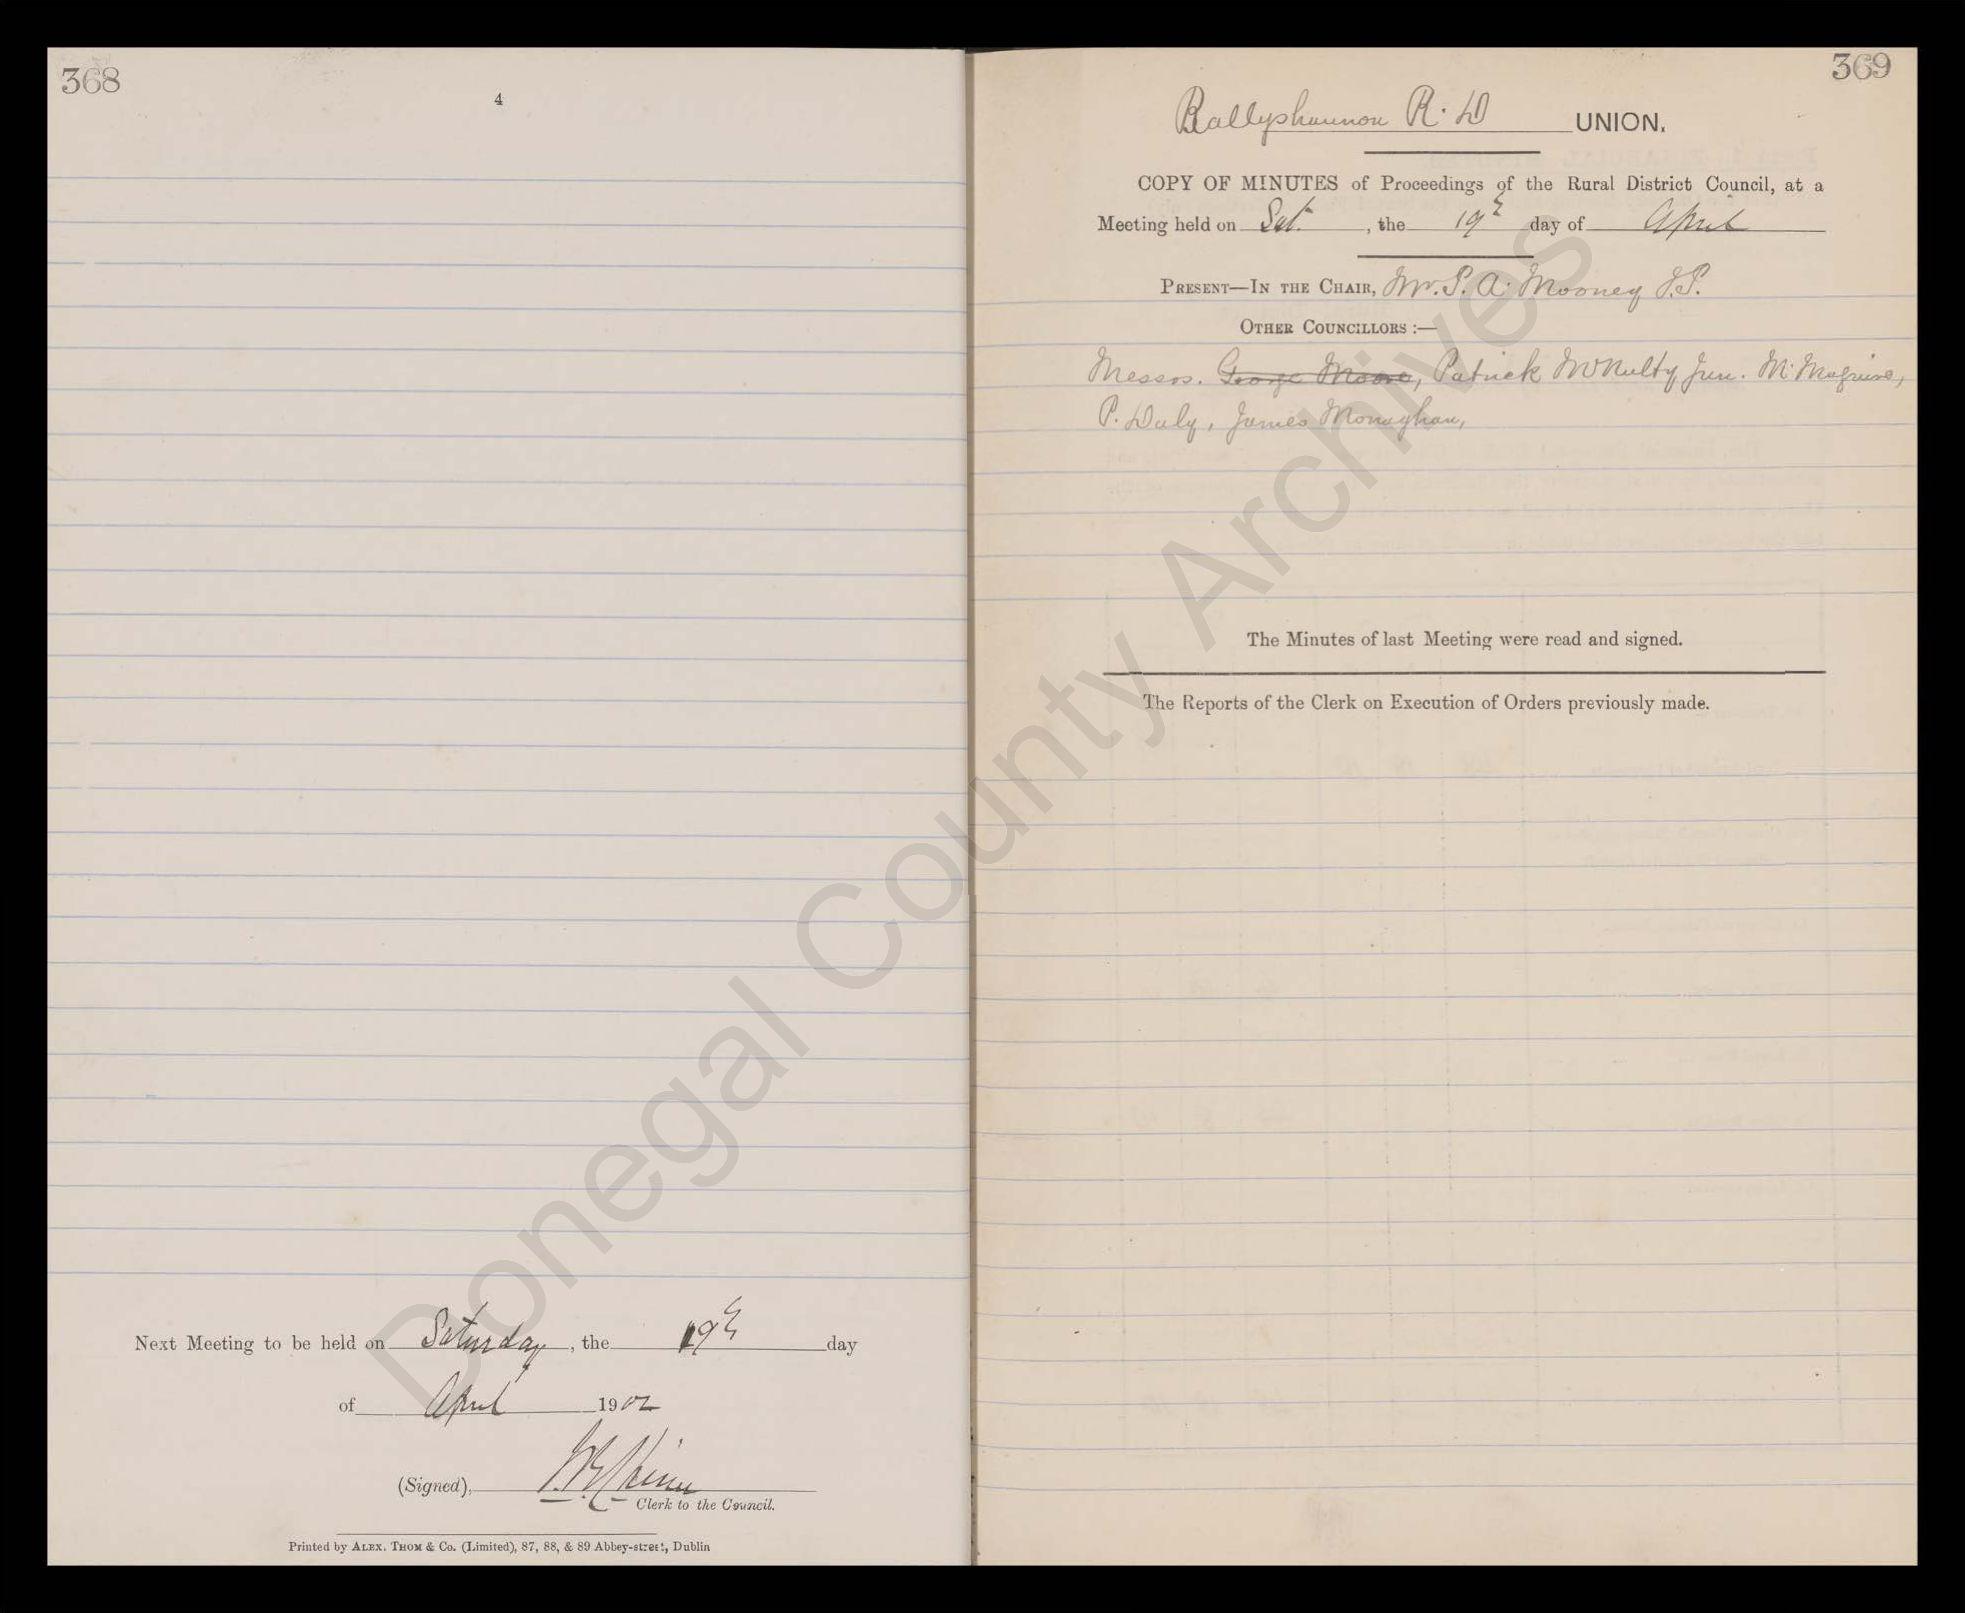 368
4
Next Meeting to be held on Saturday, the 19th day
of April 1902
(Signed),
Clerk to the Council.
Printed by ALEX. THOM & Co. (Limited), 87, 88, & 89 Abbey-street, Dublin
369
Ballyshannon R. D UNION.
COPY OF MINUTES of Proceedings of the Rural District Council, at a
Meeting held on Sat., the 19th day of April
PRESENT—IN THE CHAIR, Mr. P. A. Mooney J.P.
OTHER COUNCILLORS :—
Messrs. George Moore, Patrick McNulty Jun. M. Maguire,
P. Daly, James Monaghan,
The Minutes of last Meeting were read and signed.
The Reports of the Clerk on Execution of Orders previously made.
Donegal County Archives